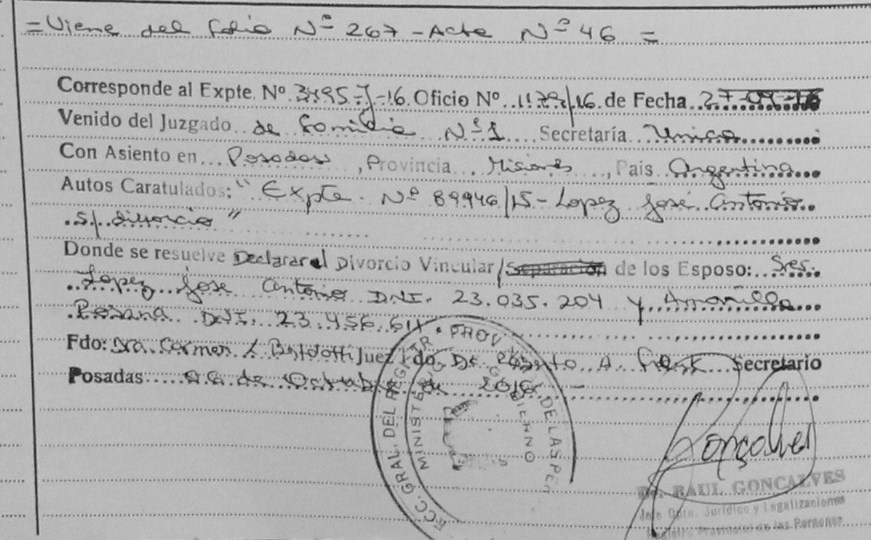 =Viene del folio Nº 267 - Acta Nº 46 =
Corresponde al Expte. Nº 3495-J-16. Oficio Nº 1179/16. de Fecha 27-09-16
Venido del Juzgado de Familia Nº 1 Secretaría Unica
Con Asiento en Posadas, Provincia Misiones, País Argentina
Autos Caratulados: "Expte. Nº 89946/15 - Lopez José Antonio
s/ divorcio"
Donde se resuelve Declarar el Divorcio Vincular/Separación de los Esposo: Sres.
Lopez José Antonio DNI. 23.035.204 y Amarilla
Rosana DNI. 23.456.611
Fdo: Dra. Carmen Juez Fdo. Dr. A. Secretario
Posadas de Octubre de 2016 -
CC. GRAL. DEL REGISTR. PROV. DE LAS PER
MINISTE G GOBIERNO
Gonçalves
Dr. RAUL GONCALVES
Jefe Dpto. Jurídico y Legalizaciones
Registro Provincial de las Personas